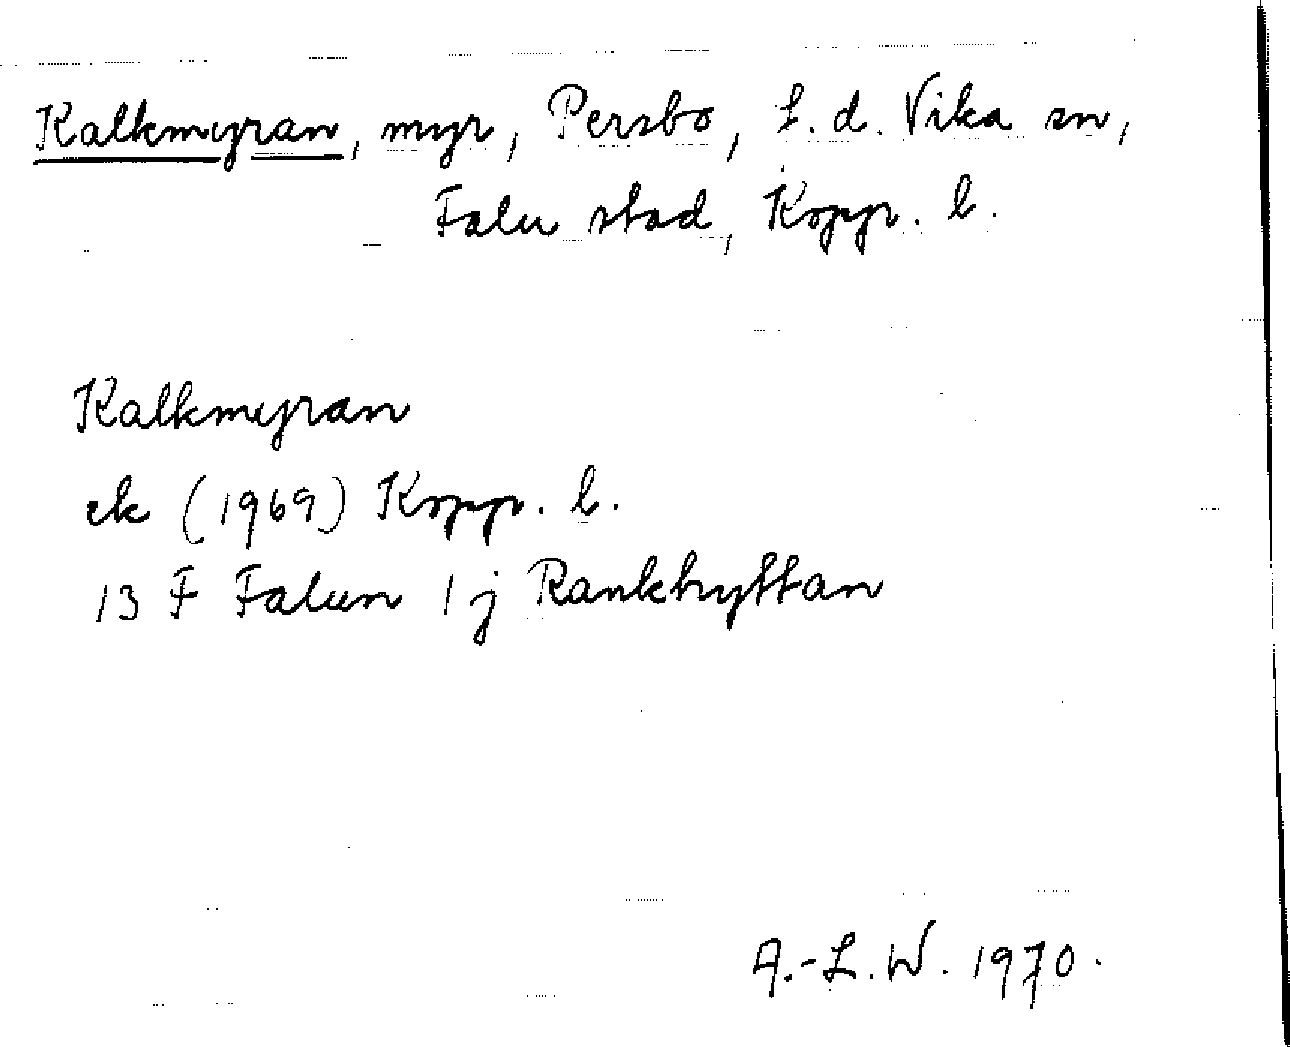 Kalkmyran, myr, Persbo, f. d. Vika sn,
Falu stad, Kopp. l.
Kalkmyran
ek (1969) Kopp. l.
13 F Falun 1 j Rankhyttan
A.-L. W. 1970.